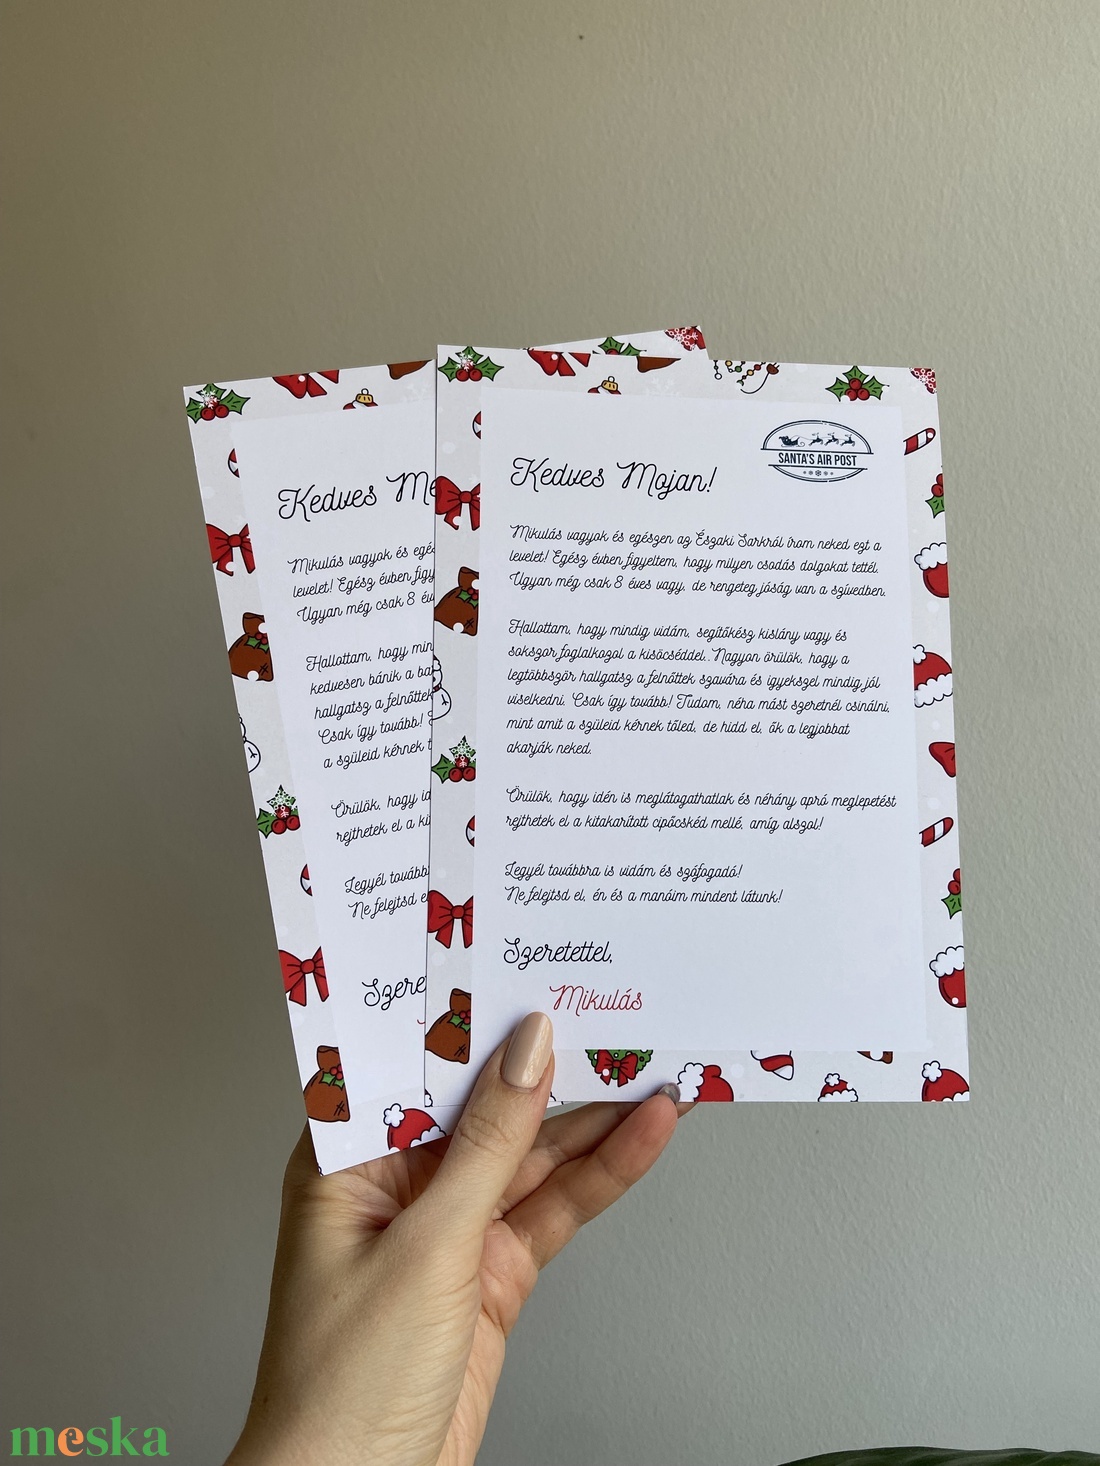 Kedves Me
Mikulás vagyok és egé
levelet! Egész évben figy
Ugyan még csak 8 év
Hallottam, hogy min
kedvesen bánik a ba
hallgatsz a felnőttek
Csak így tovább!
a szüleid kérnek t
Örülök, hogy id
rejthetek el a ki
Legyél tovább
Ne felejtsd e
Szere
SANTA'S AIR POST
Kedves Mojan!
Mikulás vagyok és egészen az Északi Sarkról írom neked ezt a
levelet! Egész évben figyeltem, hogy milyen csodás dolgokat tettél.
Ugyan még csak 8 éves vagy, de rengeteg jóság van a szívedben.
Hallottam, hogy mindig vidám, segítőkész kislány vagy és
sokszor foglalkozol a kisöcséddel. Nagyon örülök, hogy a
legtöbbször hallgatsz a felnőttek szavára és igyekszel mindig jól
viselkedni. Csak így tovább! Tudom, néha mást szeretnél csinálni,
mint amit a szüleid kérnek tőled, de hidd el, ők a legjobbat
akarják neked.
Örülök, hogy idén is meglátogathatlak és néhány apró meglepetést
rejthetek el a kitakarított cipőcskéd mellé, amíg alszol!
Legyél továbbra is vidám és szófogadó!
Ne felejtsd el, én és a manóim mindent látunk!
Szeretettel,
Mikulás
meska